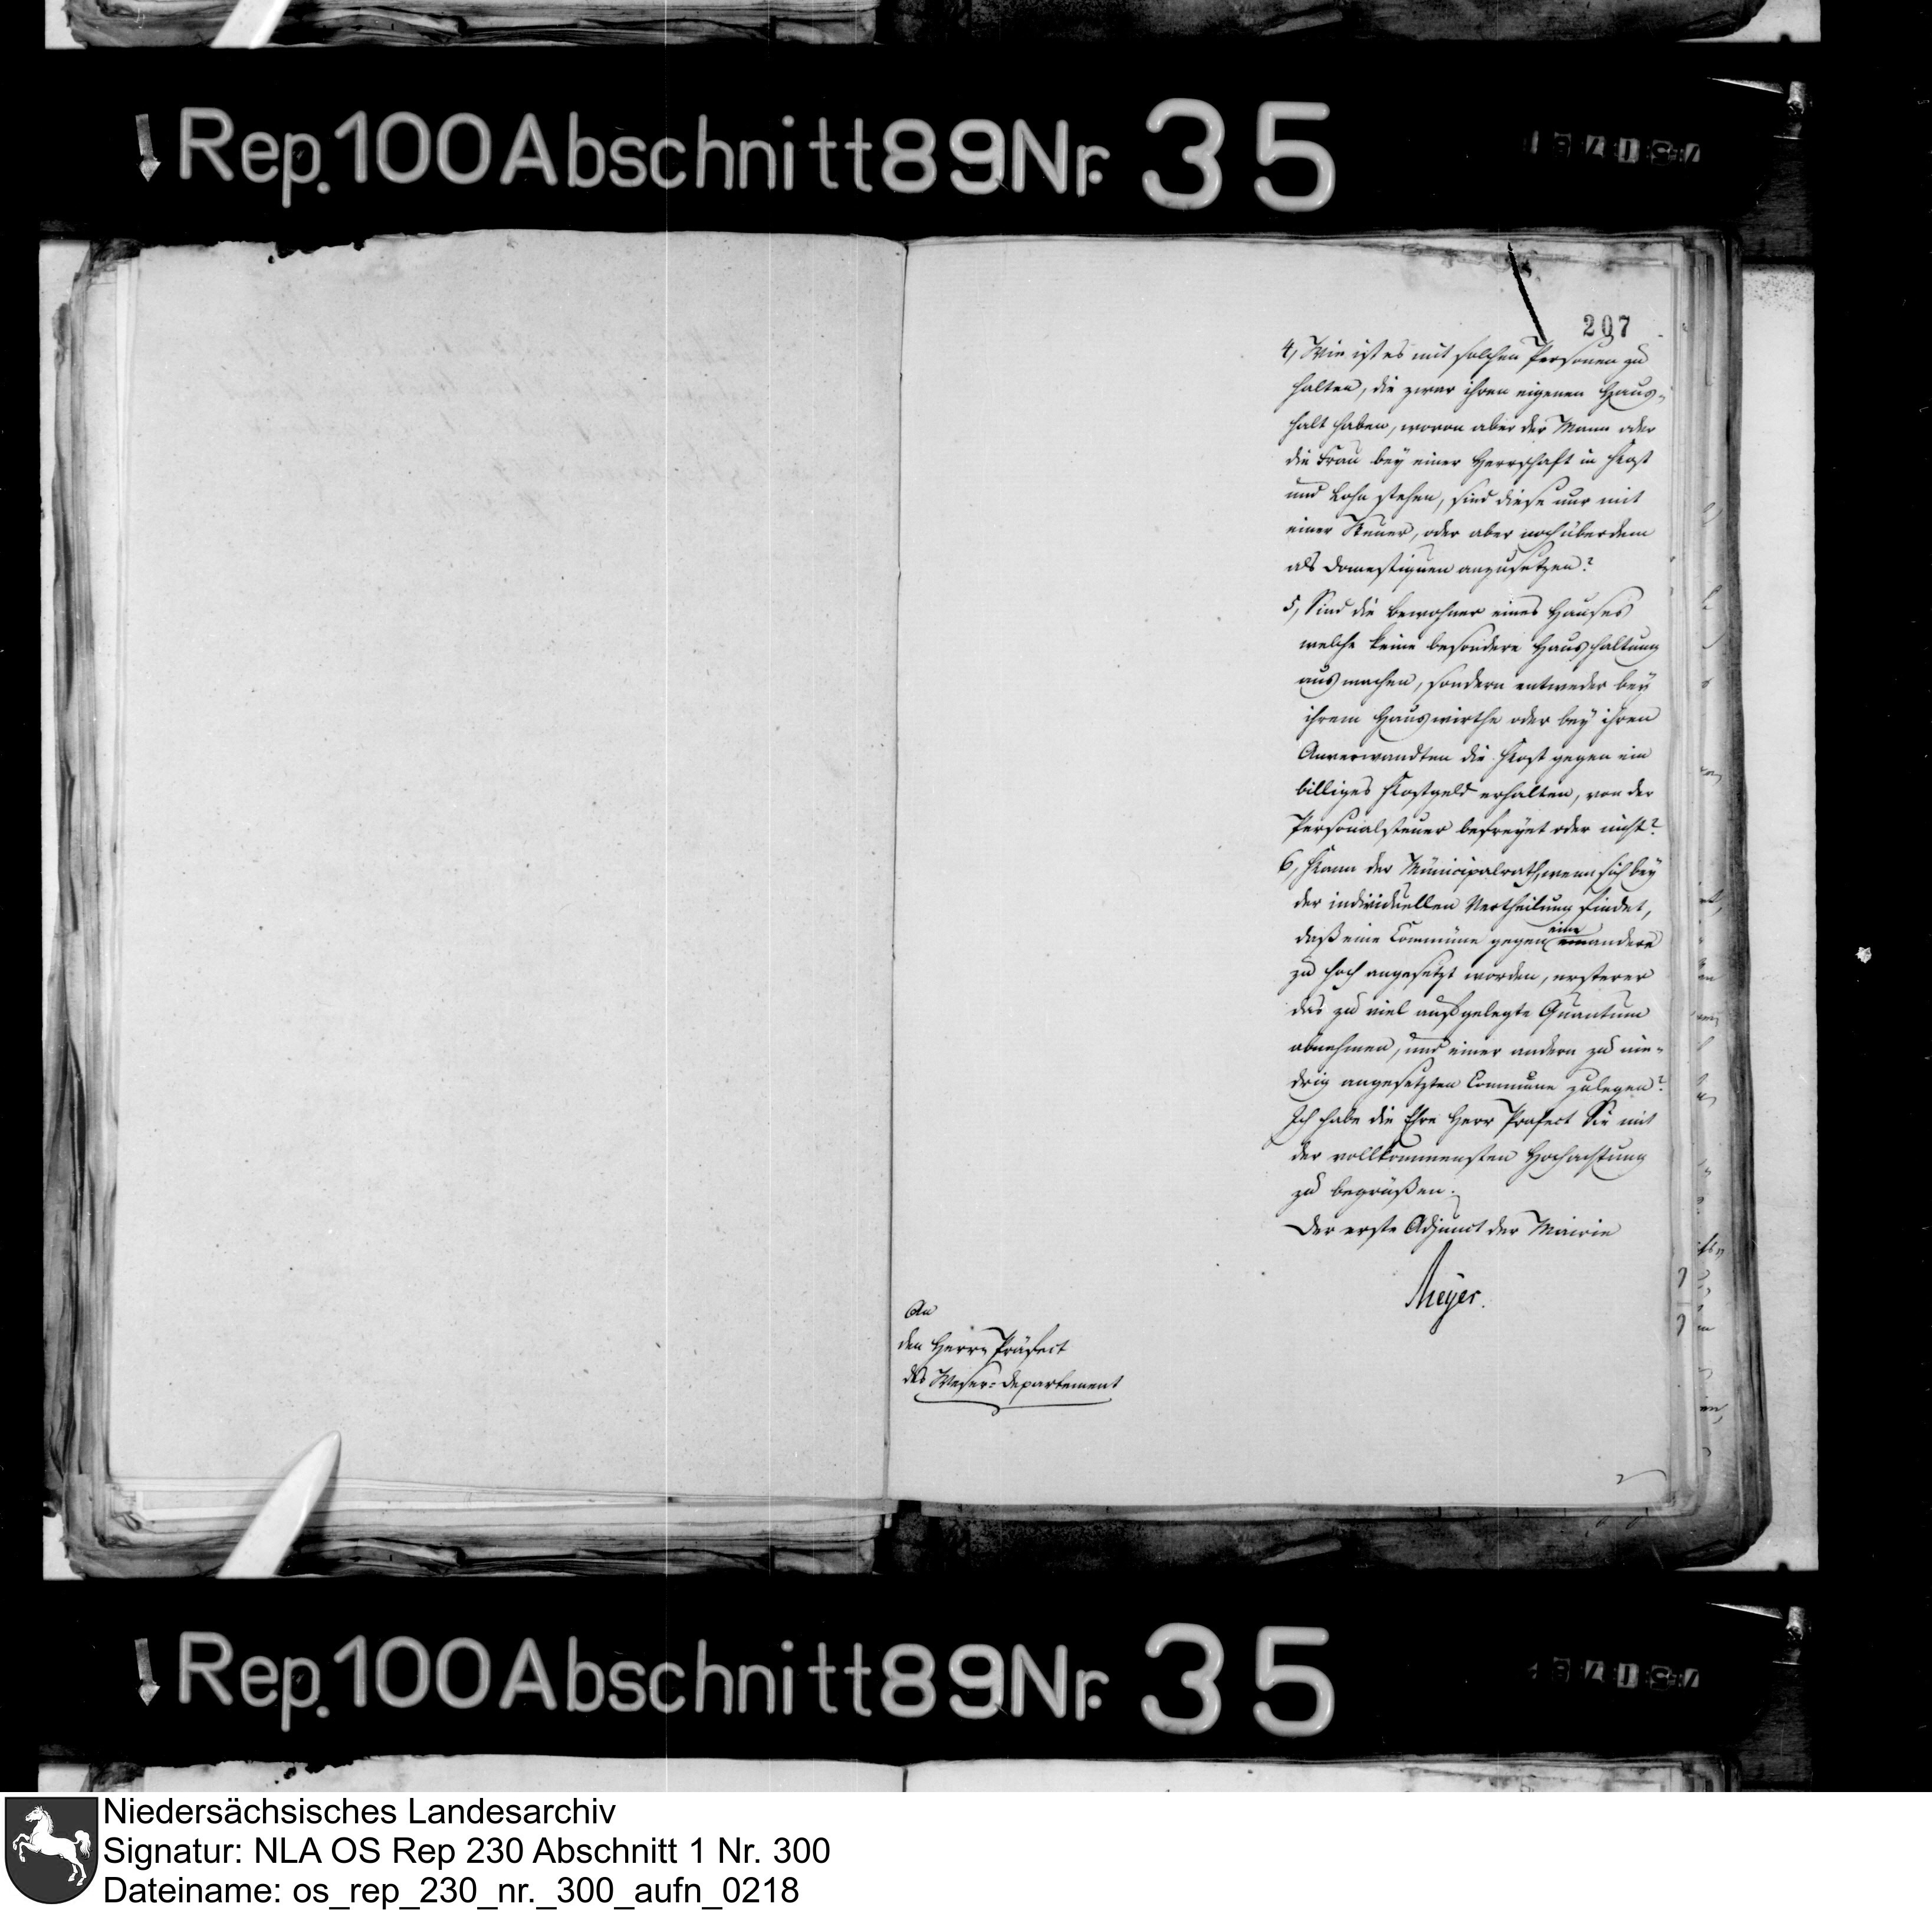 ↓ Rep. 100 Abschnitt 89 Nr. 35
207
4, Wie ist es mit solchen Personen zu
halten, die zwar ihren eigenen Haus-
halt haben, wovon aber der Mann oder
die Frau bey einer Herrschaft in Kost
und Lohn stehen, sind diese nur mit
einer Steuer, oder aber noch überdem
als Domestiquen anzusetzen?
5, Sind die Bewohner eines Hauses
welche keine besondere Haushaltung
ausmachen, sondern entweder bey
ihrem Hauswirthe oder bey ihren
Anverwandten die Kost gegen ein
billiges Kostgeld erhalten, von der
Personalsteuer befreyet oder nicht?
6, Kann der Municipalrath, wenn sich bey
der individuellen Vertheilung findet,
daß eine Commüne gegen eine andere
zu hoch angesetzt worden, ersterer
das zu viel aufgelegte Quantum
abnehmen, und einer andern zu nie-
drig angesetzten Commune zulegen?
Ich habe die Ehre Herr Präfect Sie mit
der vollkommensten Hochachtung
zu begrüßen.
Der erste Adjunct der Mairie
Meyer.
An
den Herrn Präfect
des Weser-Departement
↓ Rep. 100 Abschnitt 89 Nr. 35
Niedersächsisches Landesarchiv
Signatur: NLA OS Rep 230 Abschnitt 1 Nr. 300
Dateiname: os_rep_230_nr._300_aufn_0218